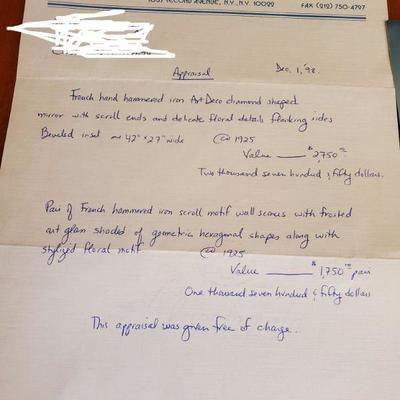 1037 SECOND AVENUE, N.Y., N.Y. 10022 FAX (212) 750-4727
Appraisal Dec. 1, '98.
French hand hammered iron Art Deco diamond shaped
mirror with scroll ends and delicate floral details flanking sides
Beveled inset ~ 42" x 27" wide @ 1925
Value — $2,750 00
Two thousand seven hundred & fifty dollars.
Pair of French hammered iron scroll motif wall sconces with frosted
art glass shades of geometric hexagonal shapes along with
stylized floral motif. @ 1925
Value — $1,750 00 pair
One thousand seven hundred & fifty dollars
This appraisal was given free of charge.